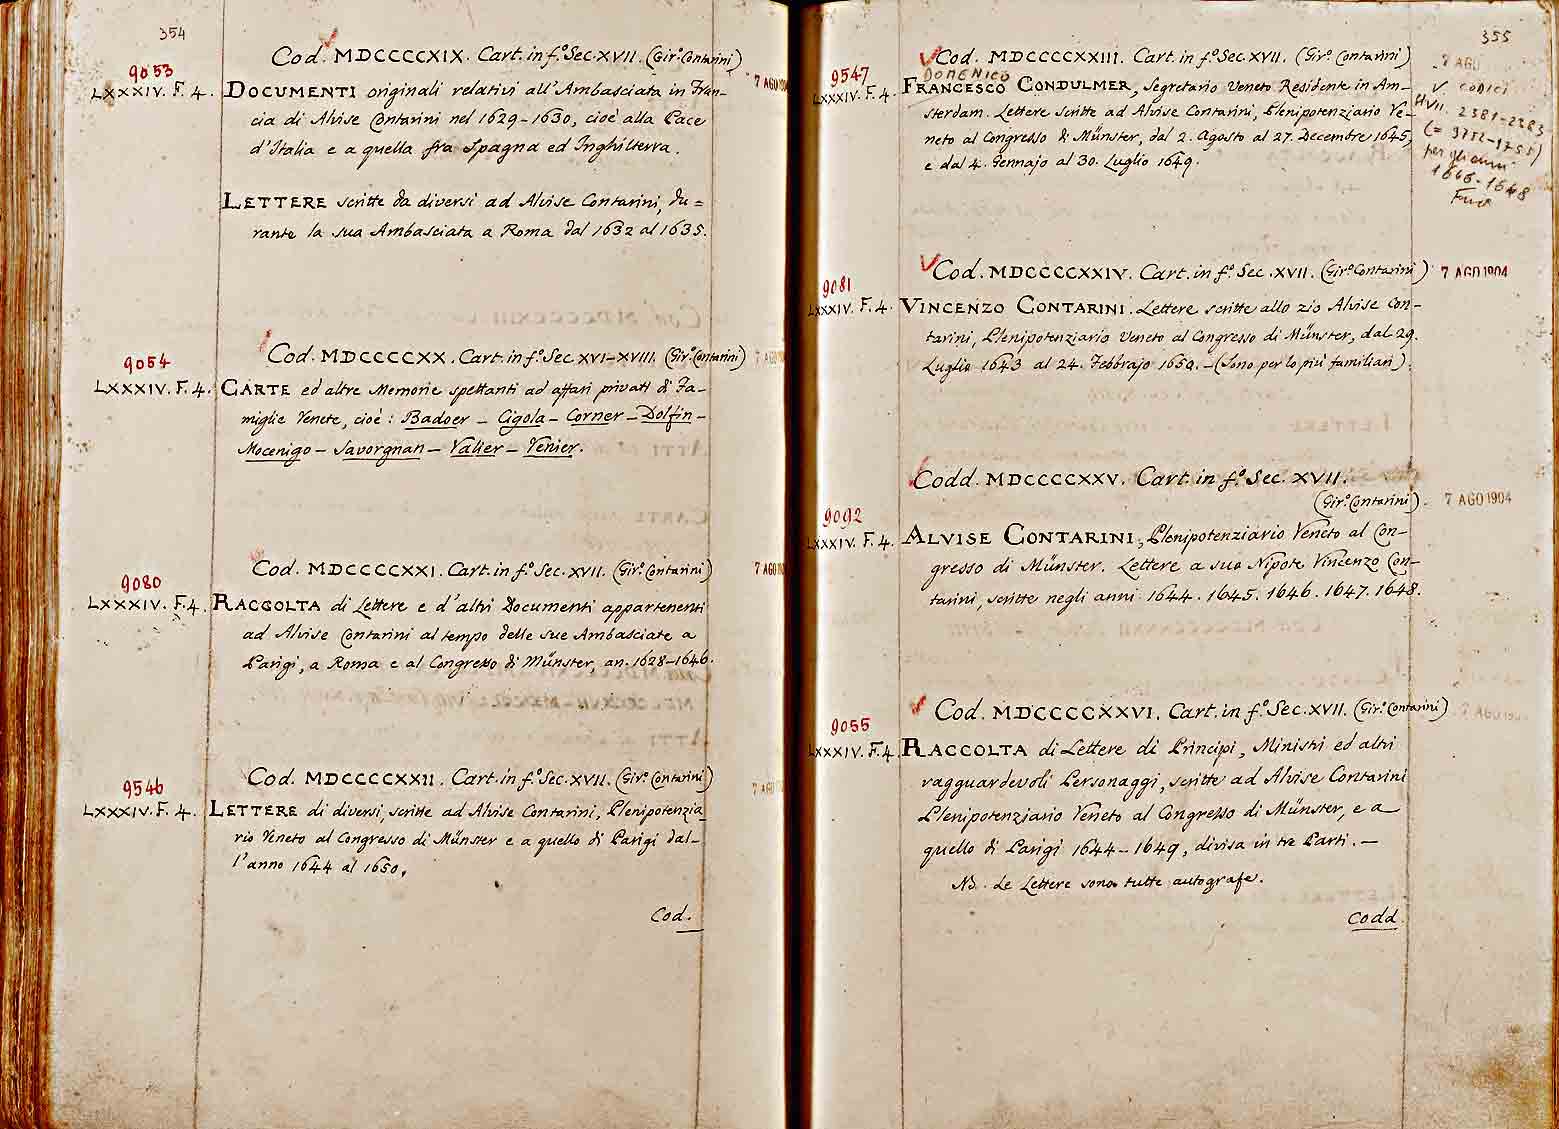 354
Cod. MDCCCCXIX. Cart. in f.º Sec. XVII. (Gir.º Contarini)
9053
7 AGO
LXXXIV. F. 4.
DOCUMENTI originali relativi all'Ambasciata in Fran-
cia di Alvise Contarini nel 1629-1630, cioè alla Pace
d'Italia e a quella fra Spagna ed Inghilterra.
LETTERE scritte da diversi ad Alvise Contarini, du=
rante la sua Ambasciata a Roma dal 1632 al 1635.
Cod. MDCCCCXX. Cart. in f.º Sec XVI-XVIII. (Gir.º Contarini)
9054
LXXXIV. F. 4.
CARTE ed altre Memorie spettanti ad affari privati di Fa-
miglie Venete, cioè: Badoer - Cigola - Corner - Dolfin -
Mocenigo - Savorgnan - Valier - Venier.
Cod. MDCCCCXXI. Cart. in f.º Sec. XVII. (Gir.º Contarini)
7 AGO
9080
LXXXIV. F. 4.
RACCOLTA di Lettere e d'altri Documenti appartenenti
ad Alvise Contarini al tempo delle sue Ambasciate a
Parigi, a Roma e al Congresso di Münster, an. 1628-1646.
Cod. MDCCCCXXII. Cart. in f.º Sec. XVII. (Gir.º Contarini)
7 AGO
9546
LXXXIV. F. 4.
LETTERE di diversi, scritte ad Alvise Contarini, Plenipotenzia
rio Veneto al Congresso di Münster e a quello di Parigi dal-
l'anno 1644 al 1650.
Cod.
355
Cod. MDCCCCXXIII. Cart. in f.º Sec. XVII. (Gir.º Contarini)
7 AGO
9547
DOMENICO
LXXXIV. F. 4.
FRANCESCO CONDULMER, Segretario Veneto Residente in Am-
sterdam. Lettere scritte ad Alvise Contarini, Plenipotenziario Ve-
neto al Congresso di Münster, dal 2. Agosto al 27. Decembre 1645,
e dal 4. Gennajo al 30. Luglio 1649.
V. codici
It. VII. 2381-2383
per gli anni
1646-1648
Cod. MDCCCCXXIV. Cart. in f.º Sec. XVII. (Gir.º Contarini)
7 AGO 1904
9081
LXXXIV. F. 4.
VINCENZO CONTARINI. Lettere scritte allo zio Alvise Con-
tarini, Plenipotenziario Veneto al Congresso di Münster, dal 29.
Luglio 1643 al 24. Febbrajo 1650. - (Sono per lo più familiari).
Codd. MDCCCCXXV. Cart. in f.º Sec. XVII.
(Gir.º Contarini).
7 AGO 1904
9092
LXXXIV. F. 4.
ALVISE CONTARINI, Plenipotenziario Veneto al Con-
gresso di Münster. Lettere a suo Nipote Vincenzo Con-
tarini, scritte negli anni 1644. 1645. 1646. 1647. 1648.
Cod. MDCCCCXXVI. Cart. in f.º Sec. XVII. (Gir.º Contarini)
7 AGO
9055
LXXXIV. F. 4.
RACCOLTA di Lettere di Principi, Ministri ed altri
ragguardevoli Personaggi, scritte ad Alvise Contarini
Plenipotenziario Veneto al Congresso di Münster, e a
quello di Parigi 1644-1649, divisa in tre Parti. —
NB. Le Lettere sono tutte autografe.
Codd.